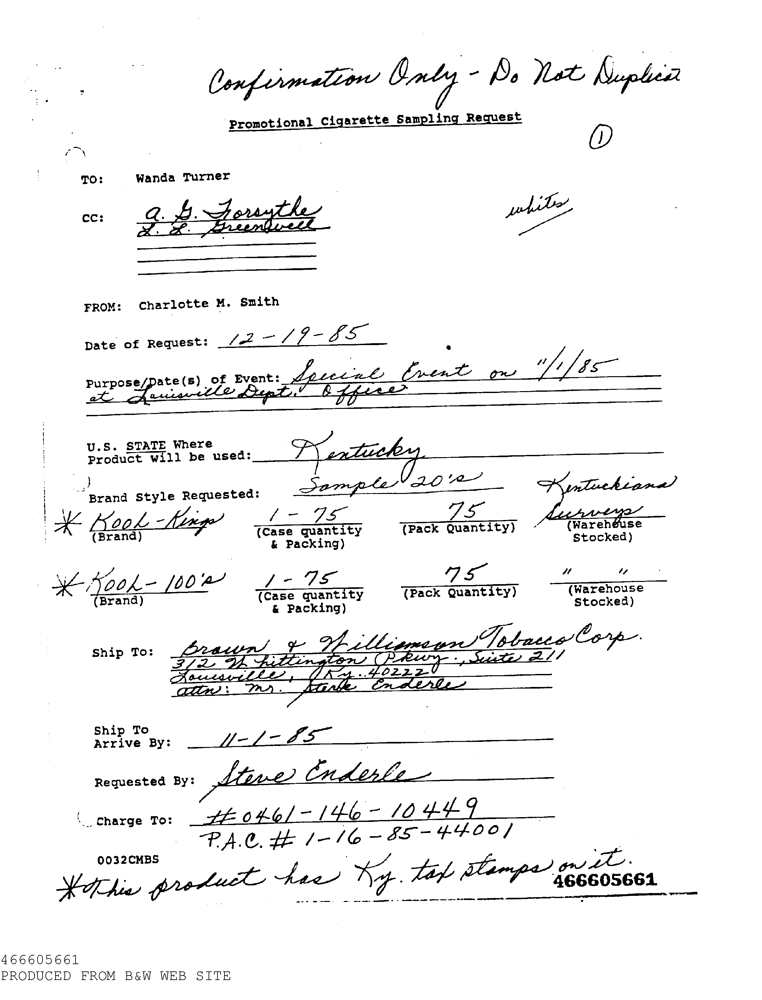 Confirmation Only - Do Not Duplicat
Promotional Cigarette Sampling Request
1
TO: Wanda Turner
whites
CC: A. G. Forsythe
L. L. Greenwell
FROM: Charlotte M. Smith
Date of Request: 12-19-85
Purpose/Date(s) of Event: Special Event on 11/1/85
at Louisville Dept. Office
U.S. STATE Where
Product will be used: Kentucky
Brand Style Requested: Sample 20's Kentuckiana
* Kool-Kings 1 - 75 75 Surveys
(Brand) (Case quantity & Packing) (Pack Quantity) (Warehouse Stocked)
* Kool-100's 1 - 75 75 " "
(Brand) (Case quantity & Packing) (Pack Quantity) (Warehouse Stocked)
Ship To: Brown & Williamson Tobacco Corp.
312 Whittington Pkwy., Suite 211
Louisville, Ky. 40222
attn: Mr. Steve Enderle
Ship To
Arrive By: 11-1-85
Requested By: Steve Enderle
Charge To: #0461-146-10449
P.A.C. # 1-16-85-44001
0032CMBS
* This product has Ky. tax stamps on it.
466605661
466605661
PRODUCED FROM B&W WEB SITE